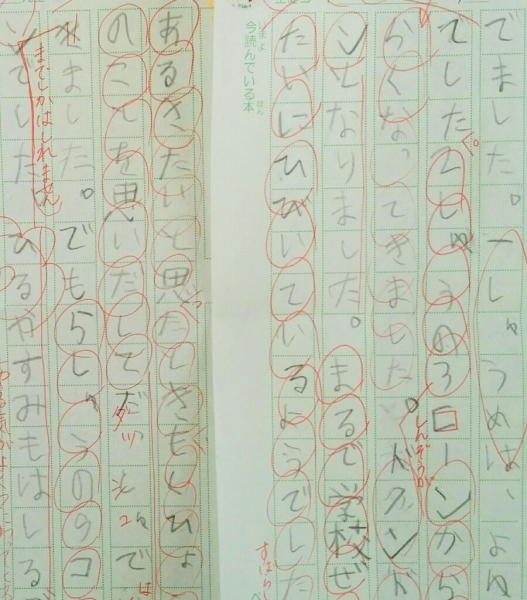 でました。一しゅうめは、よゆ
てした2しゅうの3コーンから
らくなってきました。ドクンド
しんぞうが
ンとなりました。まるで学校ぜ
たいにひびいているようでした
すばら
今読んでいる本
あるきたいと思たときもくひょ
のことを思いだして
ました。でも5しゅうの9コ
までしかはしれません
でした。ひるやすみもはしる